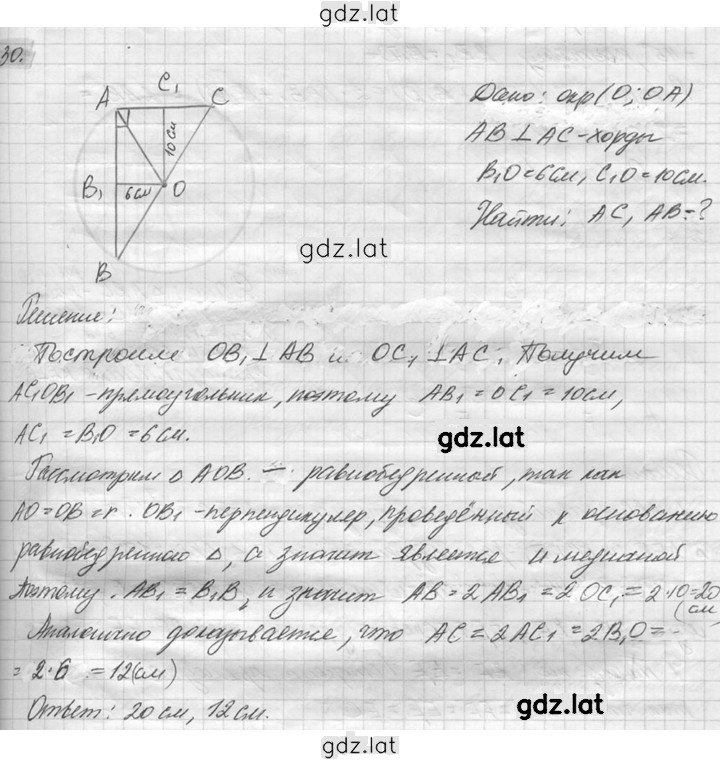 gdz.lat
30.
A C₁ C
10 см
B₁ 6 см O
B
Дано: окр(O; OA)
AB ⊥ AC - хорды
B₁O = 6 см, C₁O = 10 см.
Найти: AC, AB = ?
gdz.lat
Решение:
Построим OB₁ ⊥ AB и OC₁ ⊥ AC. Получим
AC₁OB₁ - прямоугольник, поэтому AB₁ = OC₁ = 10 см,
AC₁ = B₁O = 6 см.
gdz.lat
Рассмотрим △ AOB. — равнобедренный, так как
AO = OB = r. OB₁ - перпендикуляр, проведённый к основанию
равнобедренного △, а значит является и медианой
Поэтому. AB₁ = B₁B, и значит AB = 2 AB₁ = 2 OC₁ = 2·10 = 20
(см)
Аналогично доказывается, что AC = 2AC₁ = 2B₁O =
= 2·6 = 12 (см)
Ответ: 20 см, 12 см.
gdz.lat
gdz.lat